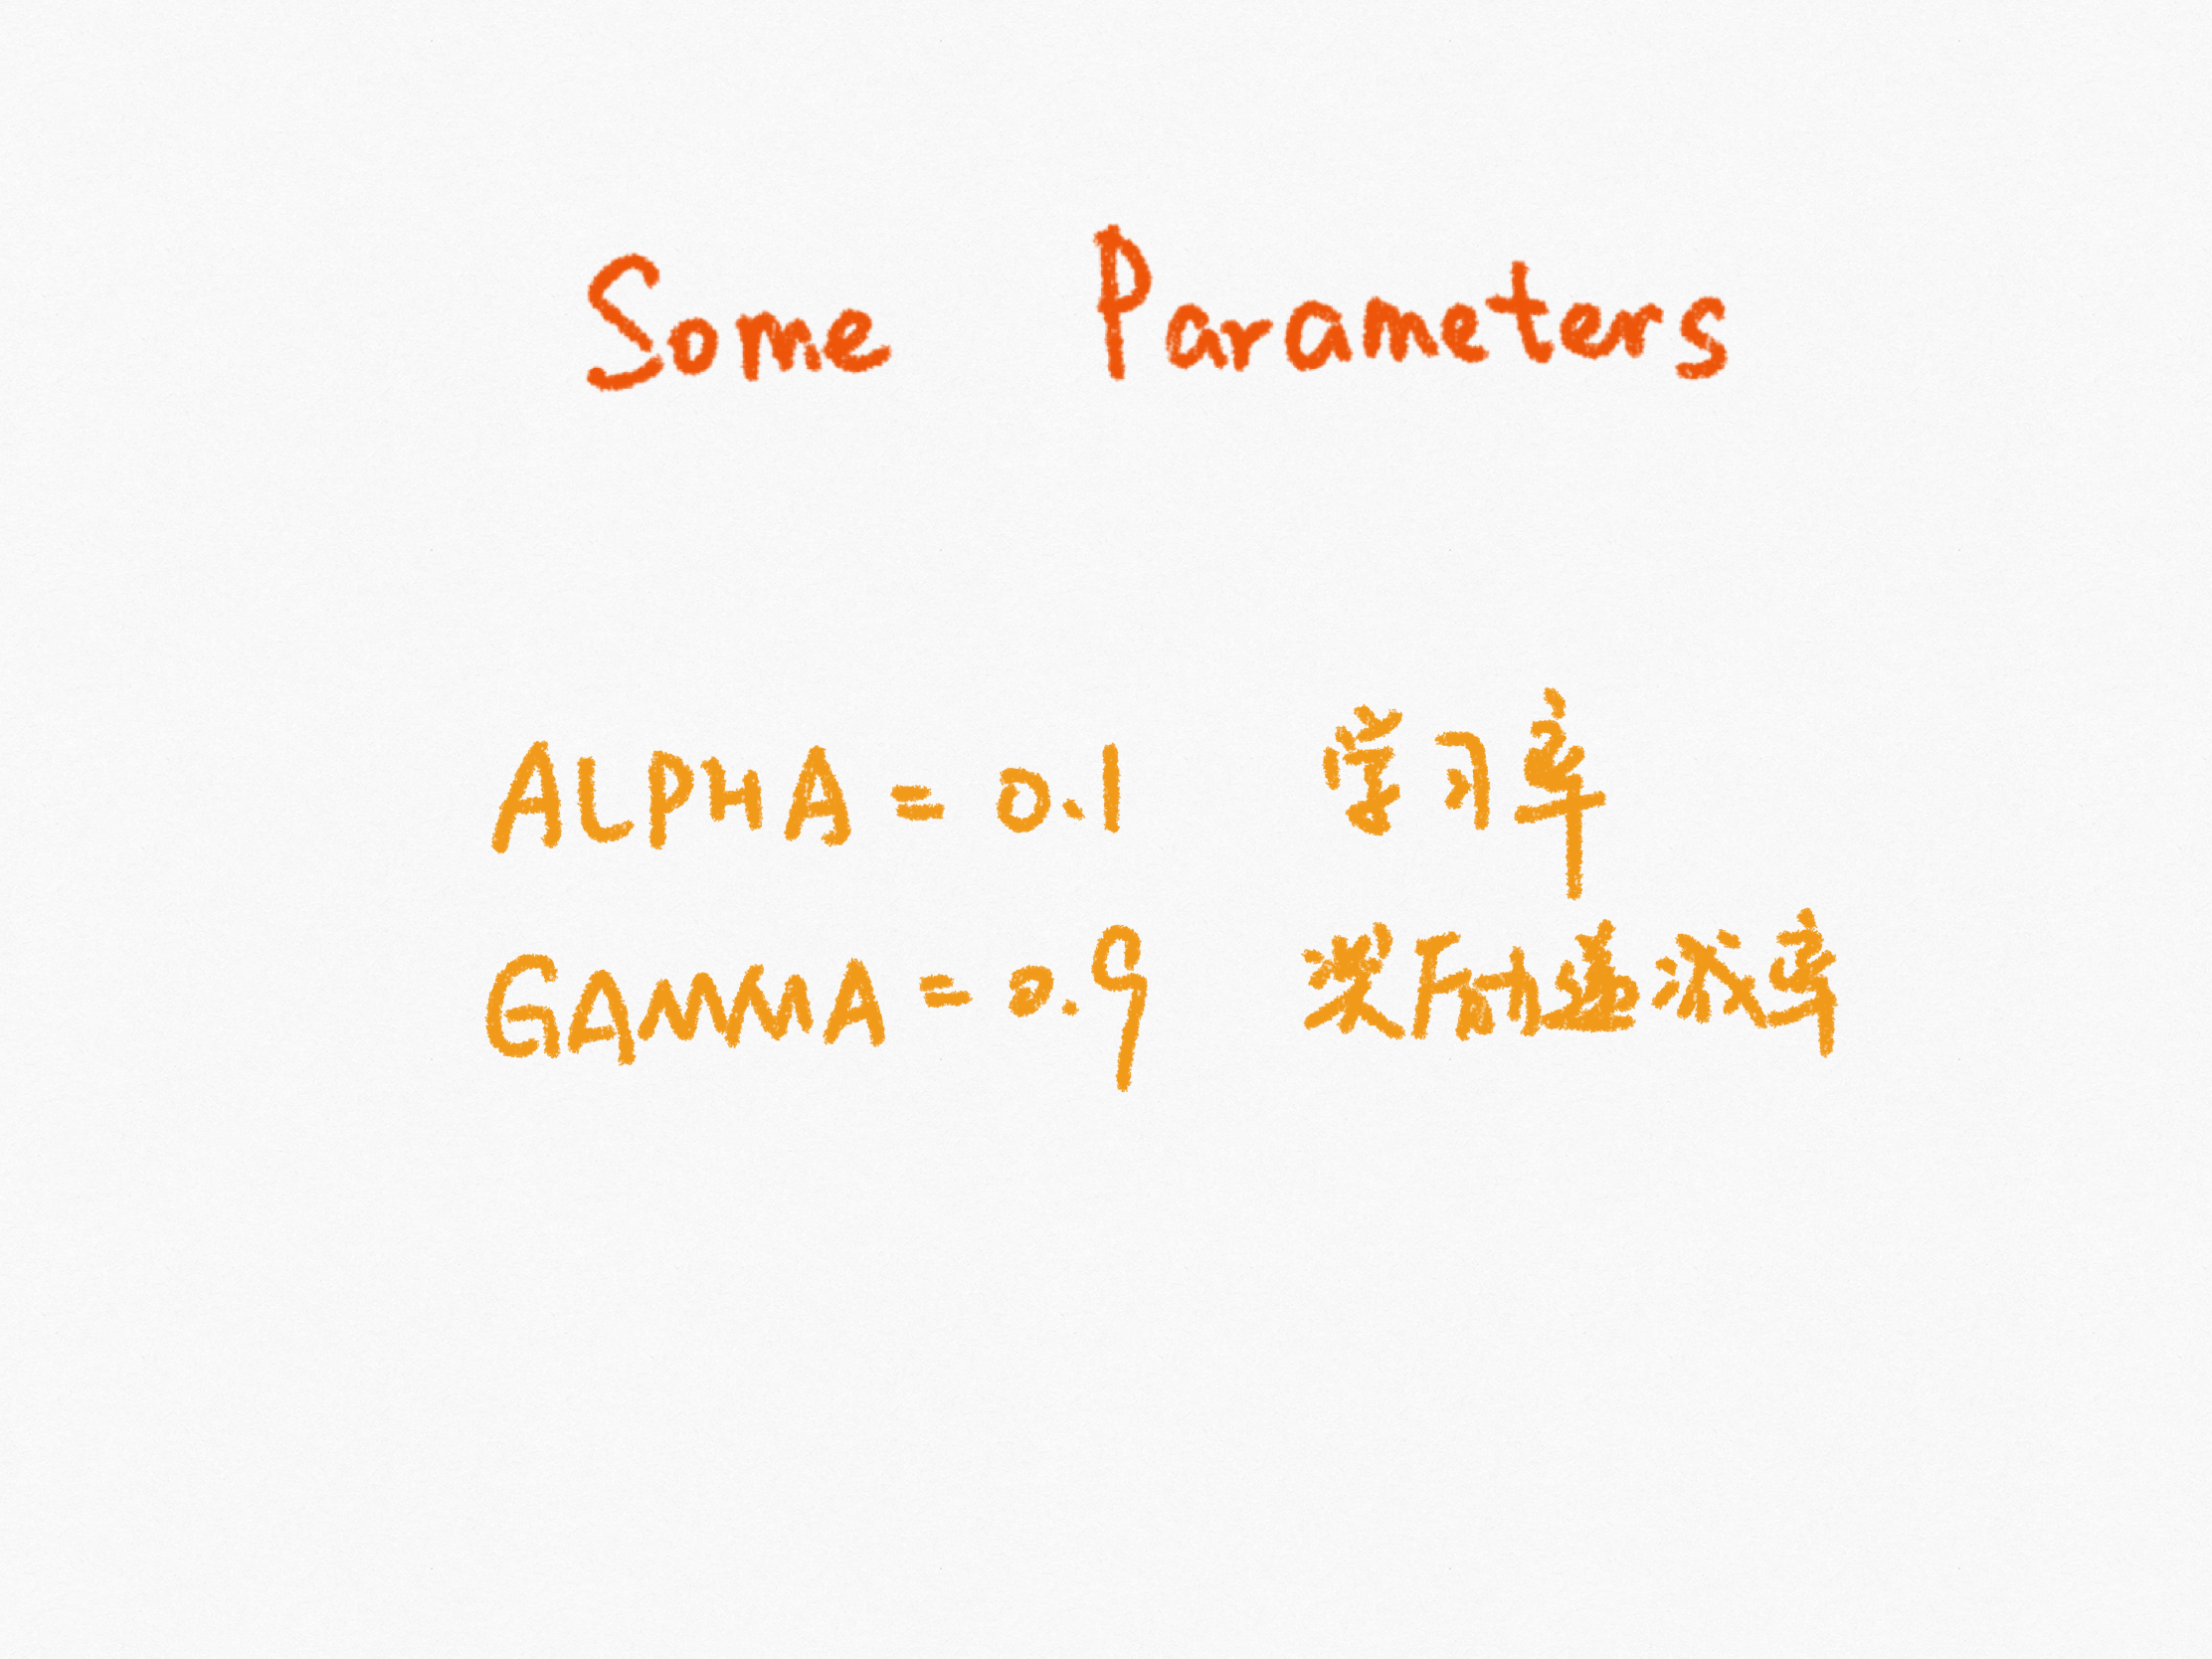 Some Parameters
ALPHA = 0.1 学习率
GAMMA = 0.9 奖励递减率